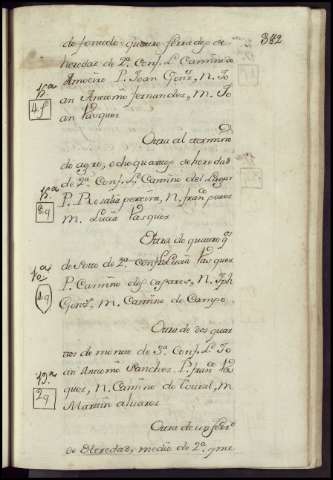 382
de forudo quatro ferrados de
heredad de 2ª Conf. L. Camino de
Ameiro P. Joan Gonz. N. Jo
an Antonio fernandez, M. Jo
an Vazquez
4 f
Otra al termino
do agro, ocho quartos de heredad
de 2ª Conf. L. Camino del Lugar
P. Rosalia pereira, N. franco perez
M. Lucia Vazquez
8 q
Otra de quatro qs
de Soto de 2ª Conf. L. Lucia Vazquez
P. Camino de casares, N. Jph
Gonz. M. Camino de Campo
4 q
Otra de dos quar
tos de monte de 3ª Conf. L. Jo
an Antonio Sanchez P. Juana Vaz
quez, N. Camino de Coural, M.
Martin alvarez
2 q
Otra de un ferr
de Heredad, medio de 2ª, y me